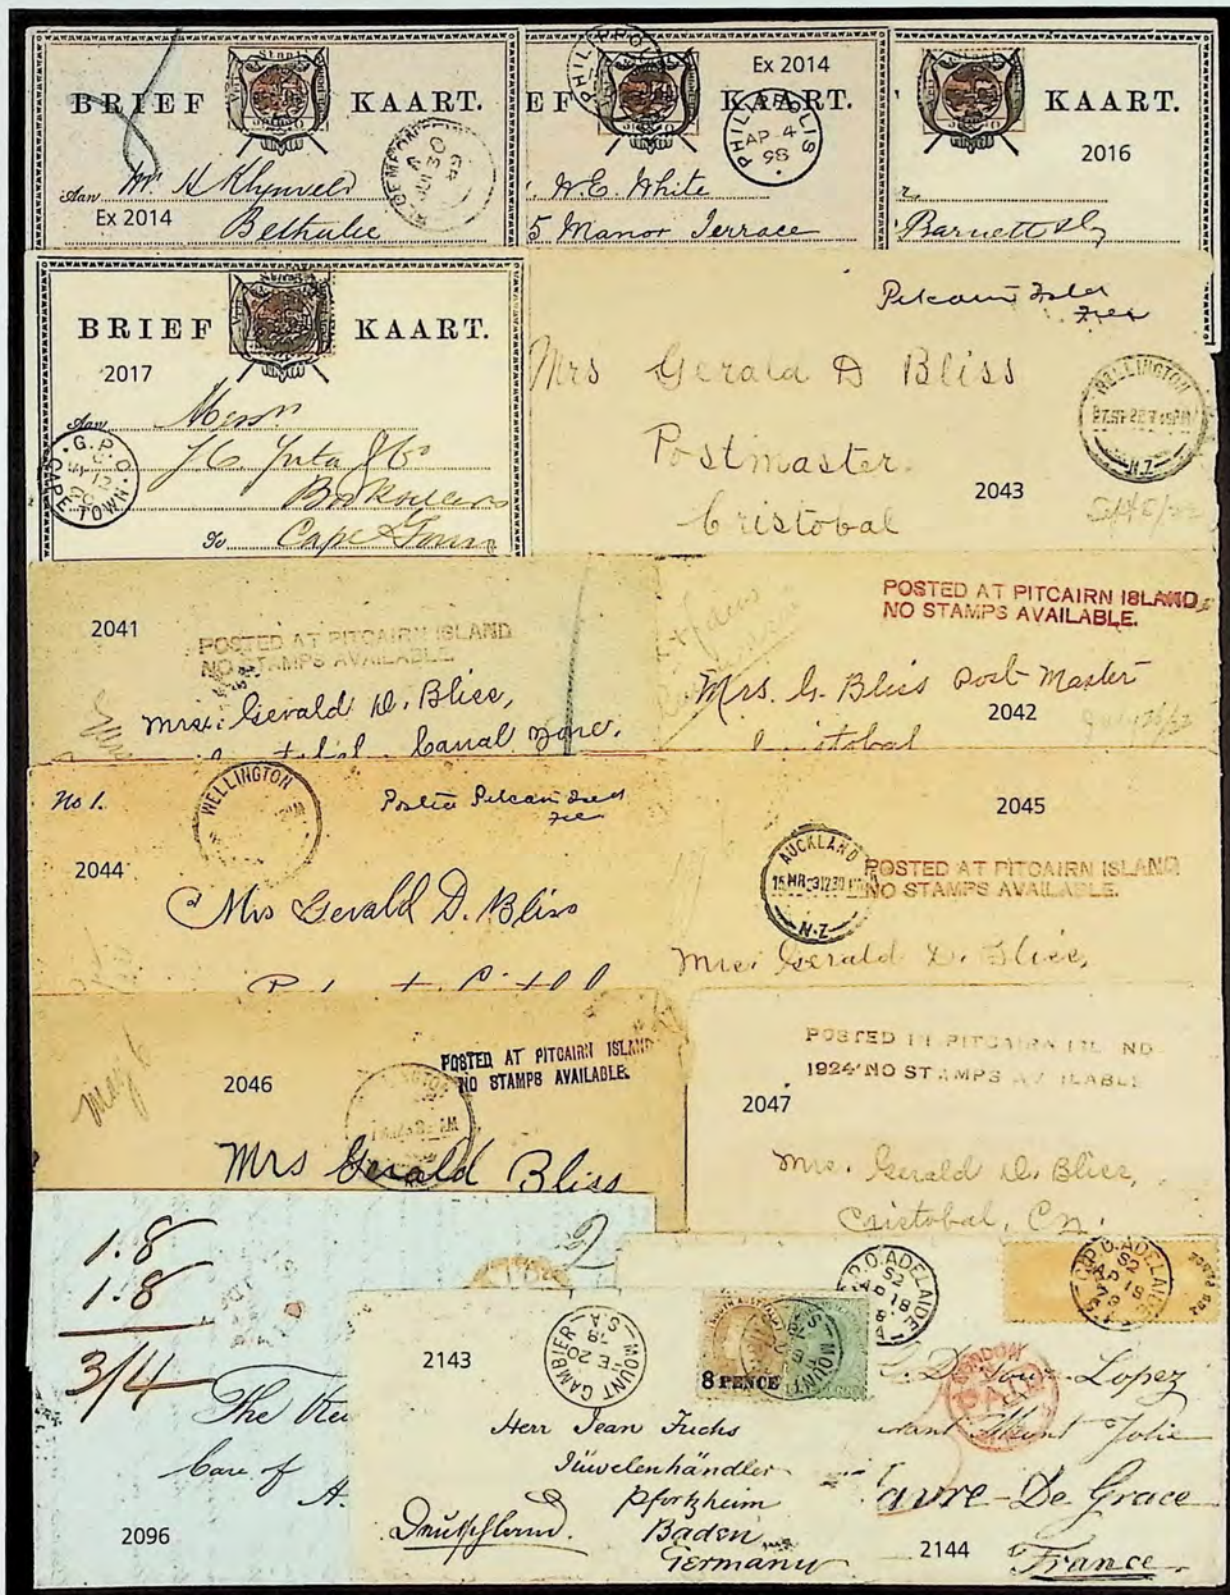 BRIEF KAART.
Aan Mr. H Klynveld
Ex 2014
Bethulie
JU 30
EF KAART.
Ex 2014
PHILIPPOLIS
PHILIPPOLIS
AP 4
98
W.E. White
5 Manor Terrace
KAART.
2016
Barnett
BRIEF KAART.
2017
Aan Messrs
G.P.O.
CAPE TOWN
J.C. Juta & Co
Booksellers
To Cape Town
Pitcairn Island
Free
Mrs Gerald D Bliss
Postmaster
Cristobal
2043
WELLINGTON
N.Z
2041
POSTED AT PITCAIRN ISLAND
NO STAMPS AVAILABLE.
Mrs. Gerald D. Bliss,
Canal Zone.
POSTED AT PITCAIRN ISLAND
NO STAMPS AVAILABLE.
Mrs. G. Bliss Post Master
2042
No 1.
WELLINGTON
Posted Pitcairn Island
Free
2044
Mrs Gerald D. Bliss
2045
AUCKLAND
N.Z
POSTED AT PITCAIRN ISLAND
NO STAMPS AVAILABLE.
Mrs. Gerald D. Bliss,
May 6
2046
POSTED AT PITCAIRN ISLAND
NO STAMPS AVAILABLE.
Mrs Gerald Bliss
POSTED IN PITCAIRN ISLAND
1924 NO STAMPS AVAILABLE
2047
Mrs. Gerald D. Bliss,
Cristobal, C.Z.
1.8
1.8
3/4
2
The Rev
Care of
A.
2096
2143
MOUNT GAMBIER
S.A
FE 20
8 PENCE
Herr Jean Fuchs
Jüwelenhändler
Pfortzheim
Baden
Germany
Deutschland.
G.P.O. ADELAIDE
AP 18
G.P.O. ADELAIDE
52
AP 18
79
LONDON
Lopez
Mont Jolie
avre-De Grace
2144
France.